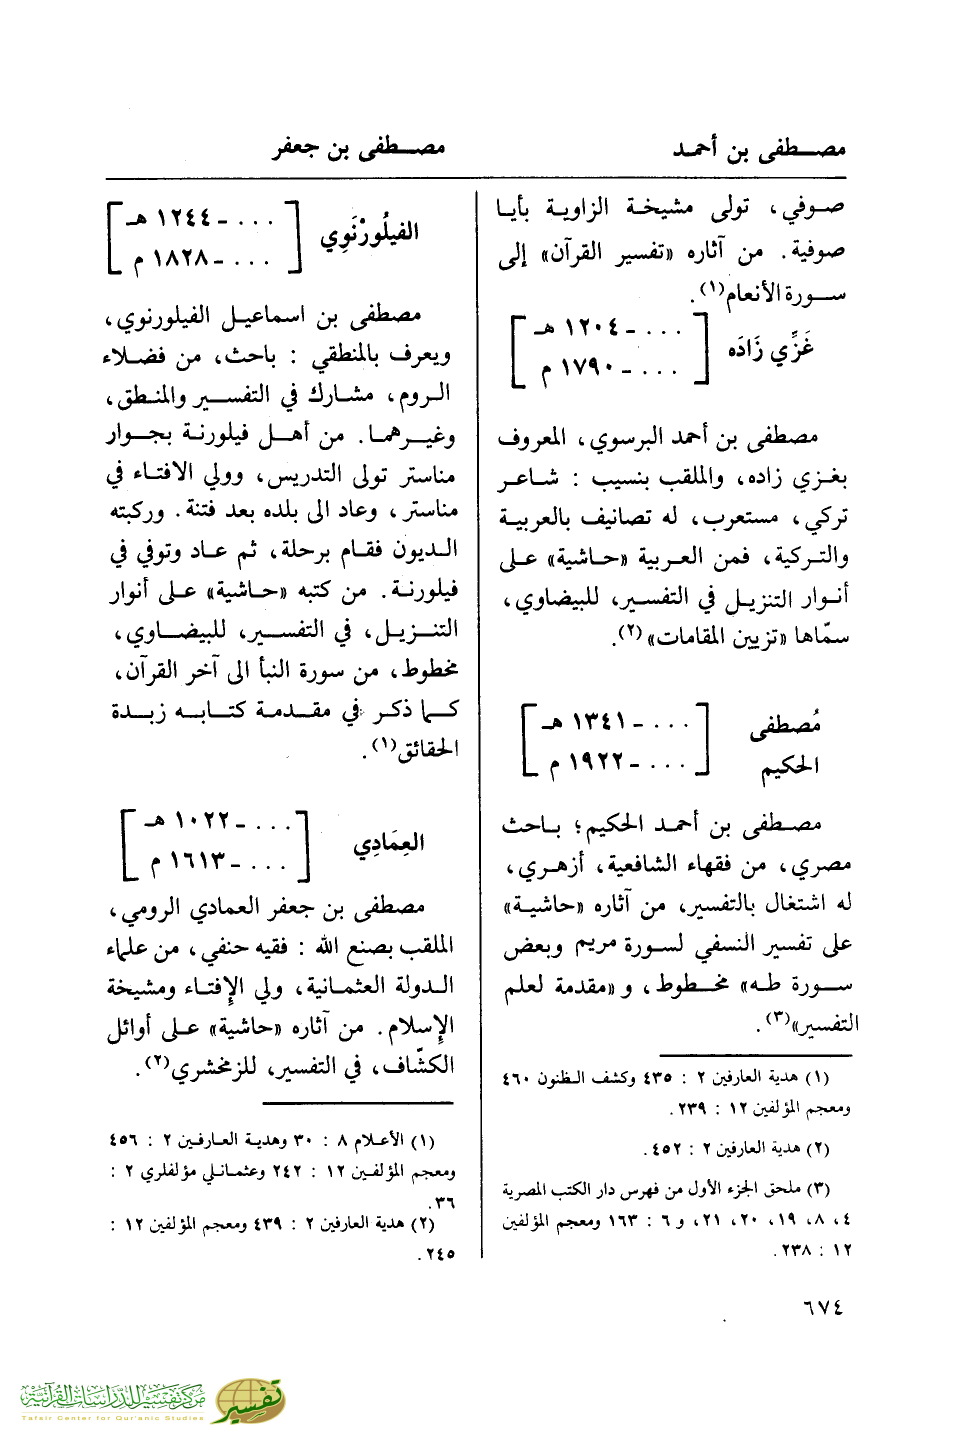 مصطفى بن أحمد
مصطفى بن جعفر
صوفي، تولى مشيخة الزاوية بأيا
صوفية. من آثاره «تفسير القرآن» إلى
سورة الأنعام(١).
غَزِّي زَادَه
[... - ١٢٠٤ هـ
... - ١٧٩٠ م]
مصطفى بن أحمد البرسوي، المعروف
بغزي زاده، والملقب بنسيب : شاعر
تركي، مستعرب، له تصانيف بالعربية
والتركية، فمن العربية «حاشية» على
أنوار التنزيل في التفسير، للبيضاوي،
سمّاها «تزيين المقامات»(٢).
مُصطفى
الحكيم
[... - ١٣٤١ هـ
... - ١٩٢٢ م]
مصطفى بن أحمد الحكيم؛ باحث
مصري، من فقهاء الشافعية، أزهري،
له اشتغال بالتفسير، من آثاره «حاشية»
على تفسير النسفي لسورة مريم وبعض
سورة طه» مخطوط، و«مقدمة لعلم
التفسير»(٣).
(١) هدية العارفين ٢ : ٤٣٥ وكشف الظنون ٤٦٠
ومعجم المؤلفين ١٢ : ٢٣٩.
(٢) هدية العارفين ٢ : ٤٥٢.
(٣) ملحق الجزء الأول من فهرس دار الكتب المصرية
٤، ٨، ١٩، ٢٠، ٢١، و ٦ : ١٦٣ ومعجم المؤلفين
١٢ : ٢٣٨.
الفيلُورْنَوِي
[... - ١٢٤٤ هـ
... - ١٨٢٨ م]
مصطفى بن اسماعيل الفيلورنوي،
ويعرف بالمنطقي : باحث، من فضلاء
الروم، مشارك في التفسير والمنطق،
وغيرهما. من أهل فيلورنة بجوار
مناستر تولى التدريس، وولي الافتاء في
مناستر، وعاد الى بلده بعد فتنة. وركبته
الديون فقام برحلة، ثم عاد وتوفي في
فيلورنة. من كتبه «حاشية» على أنوار
التنزيل، في التفسير، للبيضاوي،
مخطوط، من سورة النبأ الى آخر القرآن،
كما ذكر في مقدمة كتابه زبدة
الحقائق(١).
العِمَادِي
[... - ١٠٢٢ هـ
... - ١٦١٣ م]
مصطفى بن جعفر العمادي الرومي،
الملقب بصنع الله : فقيه حنفي، من علماء
الدولة العثمانية، ولي الإفتاء ومشيخة
الإسلام. من آثاره «حاشية» على أوائل
الكشّاف، في التفسير، للزمخشري(٢).
(١) الأعلام ٨ : ٣٠ وهدية العارفين ٢ : ٤٥٦
ومعجم المؤلفين ١٢ : ٢٤٢ وعثمانلي مؤلفلري ٢ :
٣٦.
(٢) هدية العارفين ٢ : ٤٣٩ ومعجم المؤلفين ١٢ :
٢٤٥.
٦٧٤
مركز تفسير للدراسات القرآنية
Tafsir Center for Qur'anic Studies
تفسير